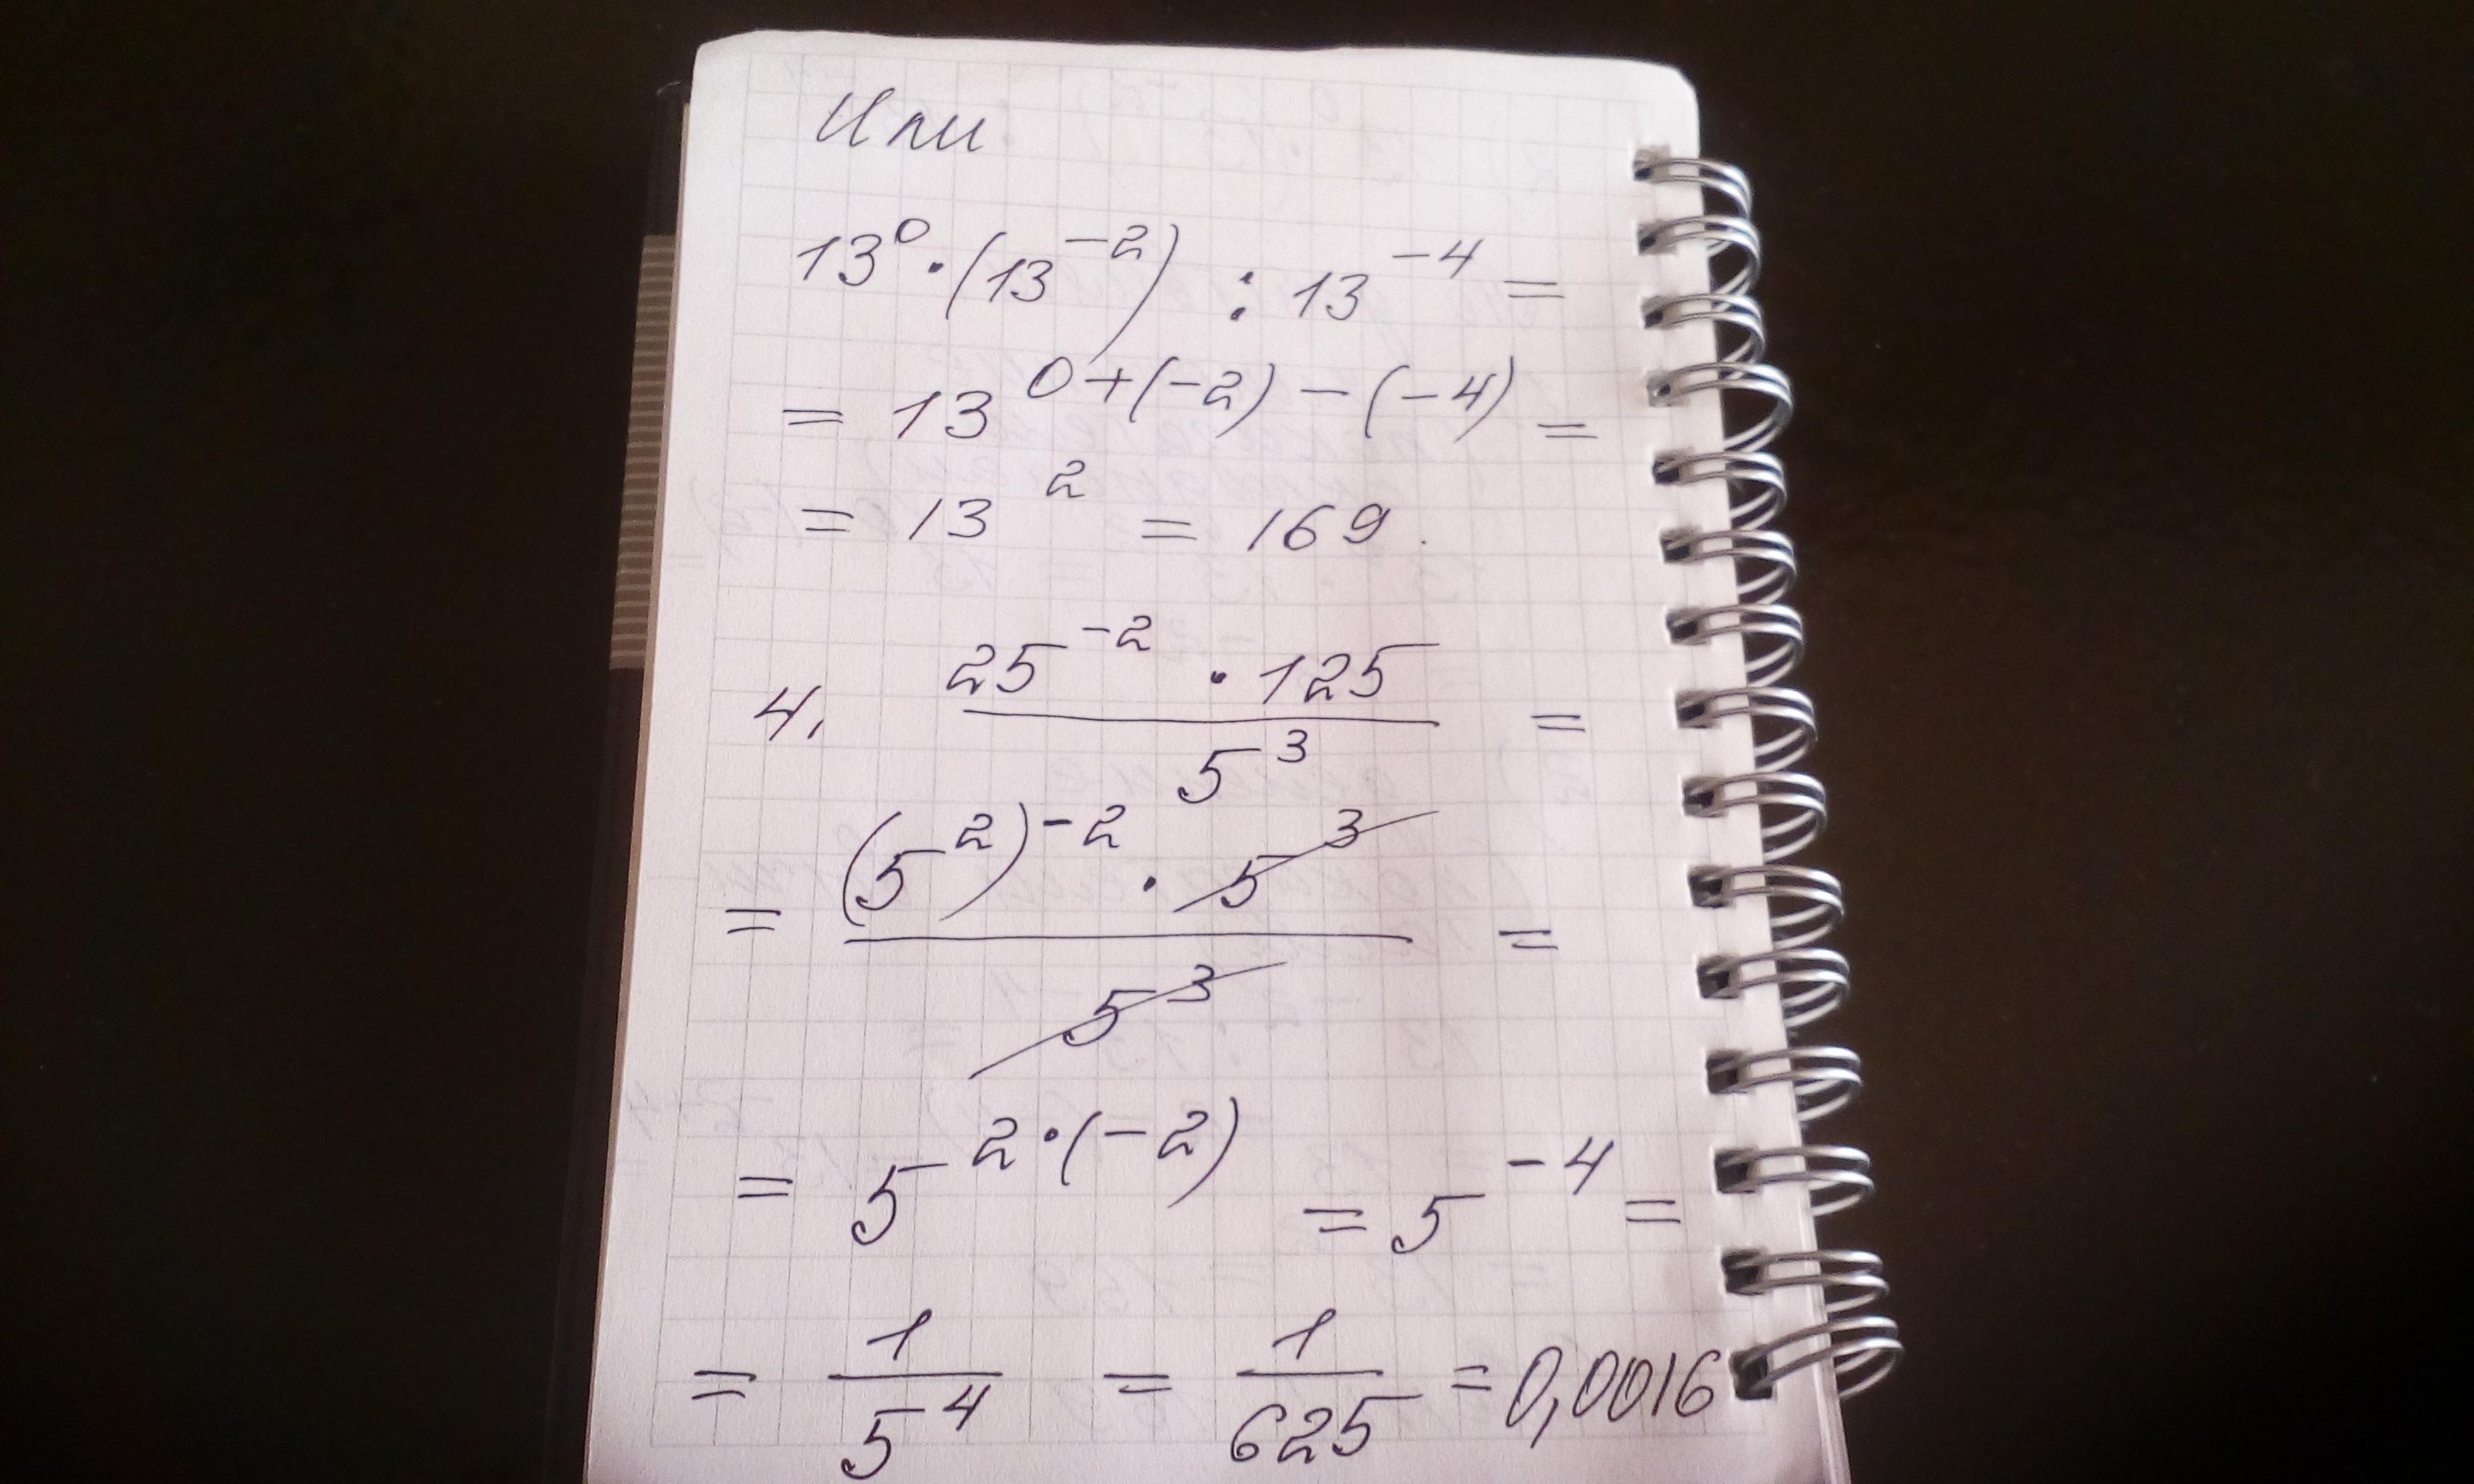 Или
13⁰ · (13⁻²) : 13⁻⁴ =
= 13⁰⁺⁽⁻²⁾⁻⁽⁻⁴⁾ =
= 13² = 169.
4. (25⁻² · 125) / 5³ =
= ((5²)⁻² · 5³) / 5³ =
= 5^(2·(-2)) = 5⁻⁴ =
= 1/5⁴ = 1/625 = 0,0016